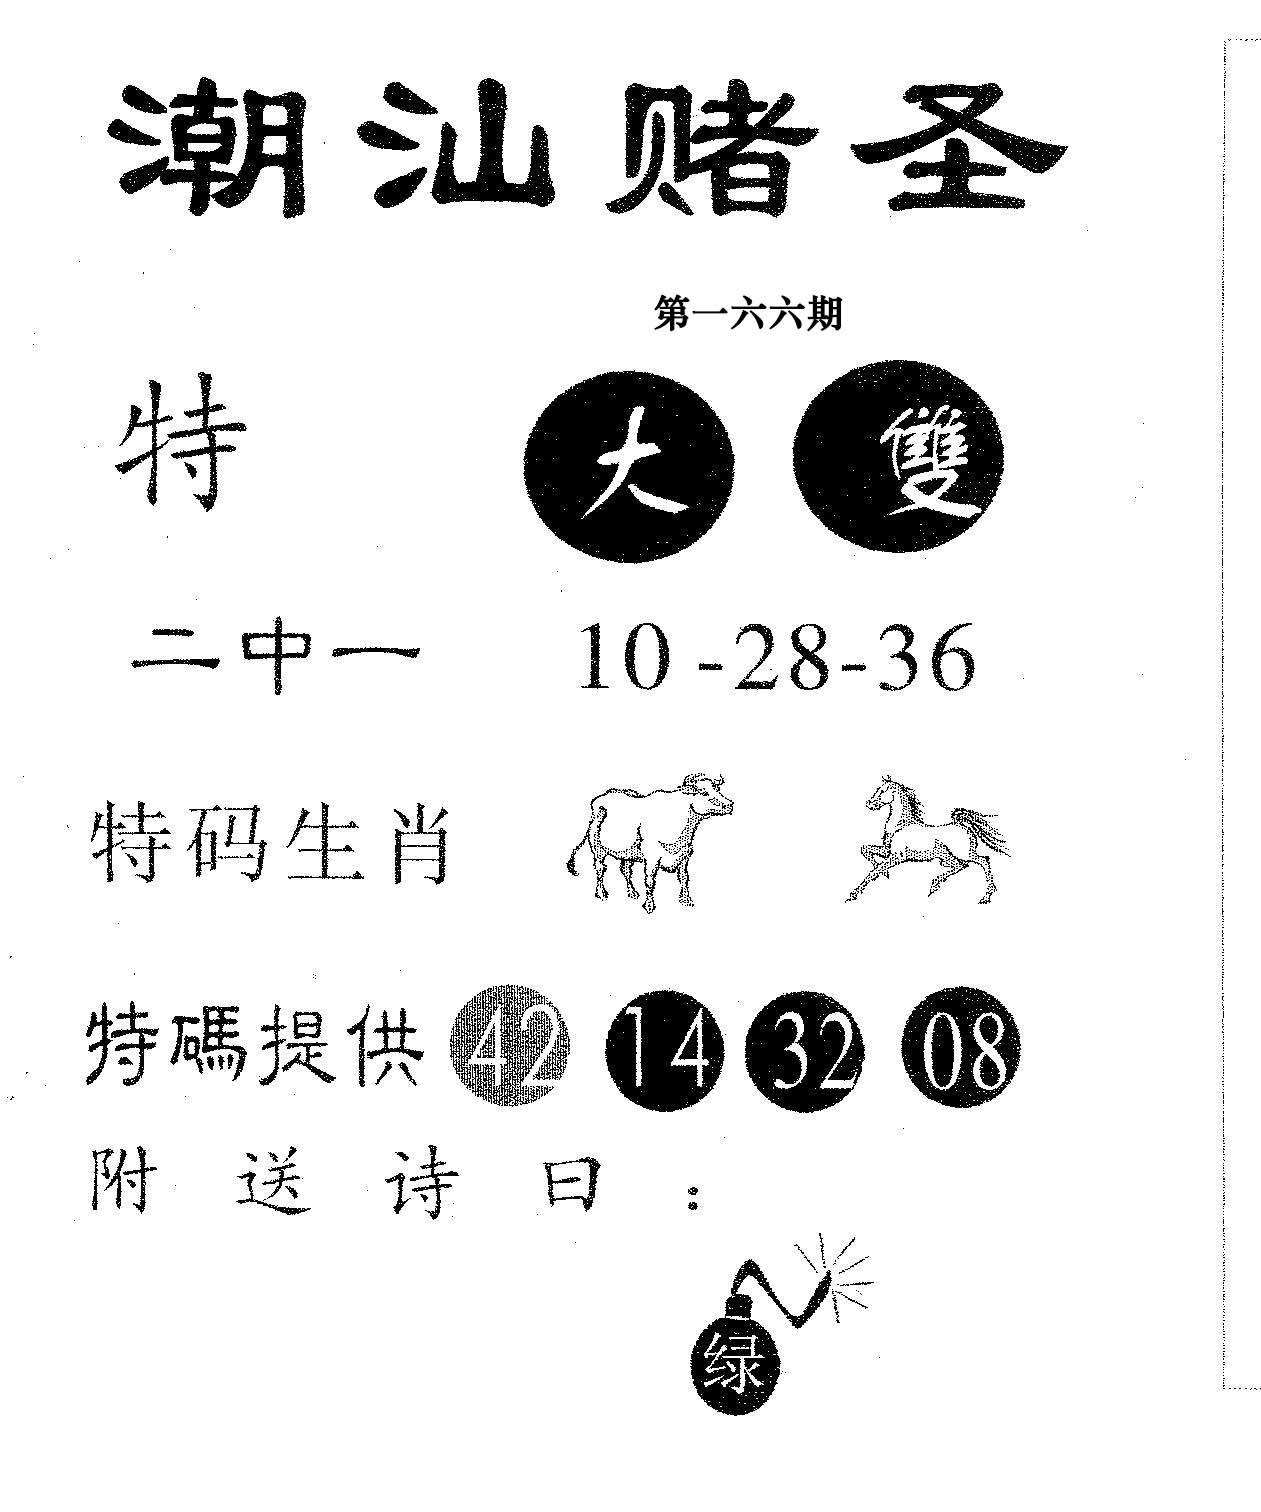 潮汕赌圣
第一六六期
特 大 雙
二中一 10-28-36
特码生肖
特碼提供 42 14 32 08
附送诗曰：
绿